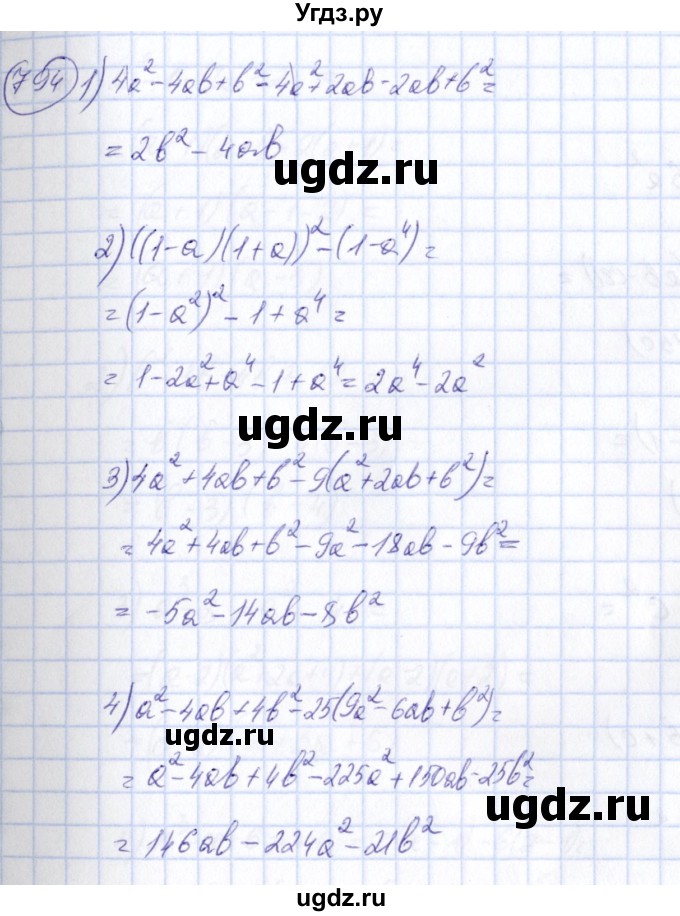 Угдз.ру
794 1) 4a² - 4ab + b² - 4a² + 2ab - 2ab + b² =
= 2b² - 4ab
ugdz.ru
2) ((1-a)(1+a))² - (1-a⁴) =
= (1-a²)² - 1 + a⁴ =
= 1 - 2a² + a⁴ - 1 + a⁴ = 2a⁴ - 2a²
ugdz.ru
3) 4a² + 4ab + b² - 9(a² + 2ab + b²) =
= 4a² + 4ab + b² - 9a² - 18ab - 9b² =
= -5a² - 14ab - 8b²
4) a² - 4ab + 4b² - 25(9a² - 6ab + b²) =
ugdz.ru
= a² - 4ab + 4b² - 225a² + 150ab - 25b² =
ugdz.ru
= 146ab - 224a² - 21b²
ugdz.ru